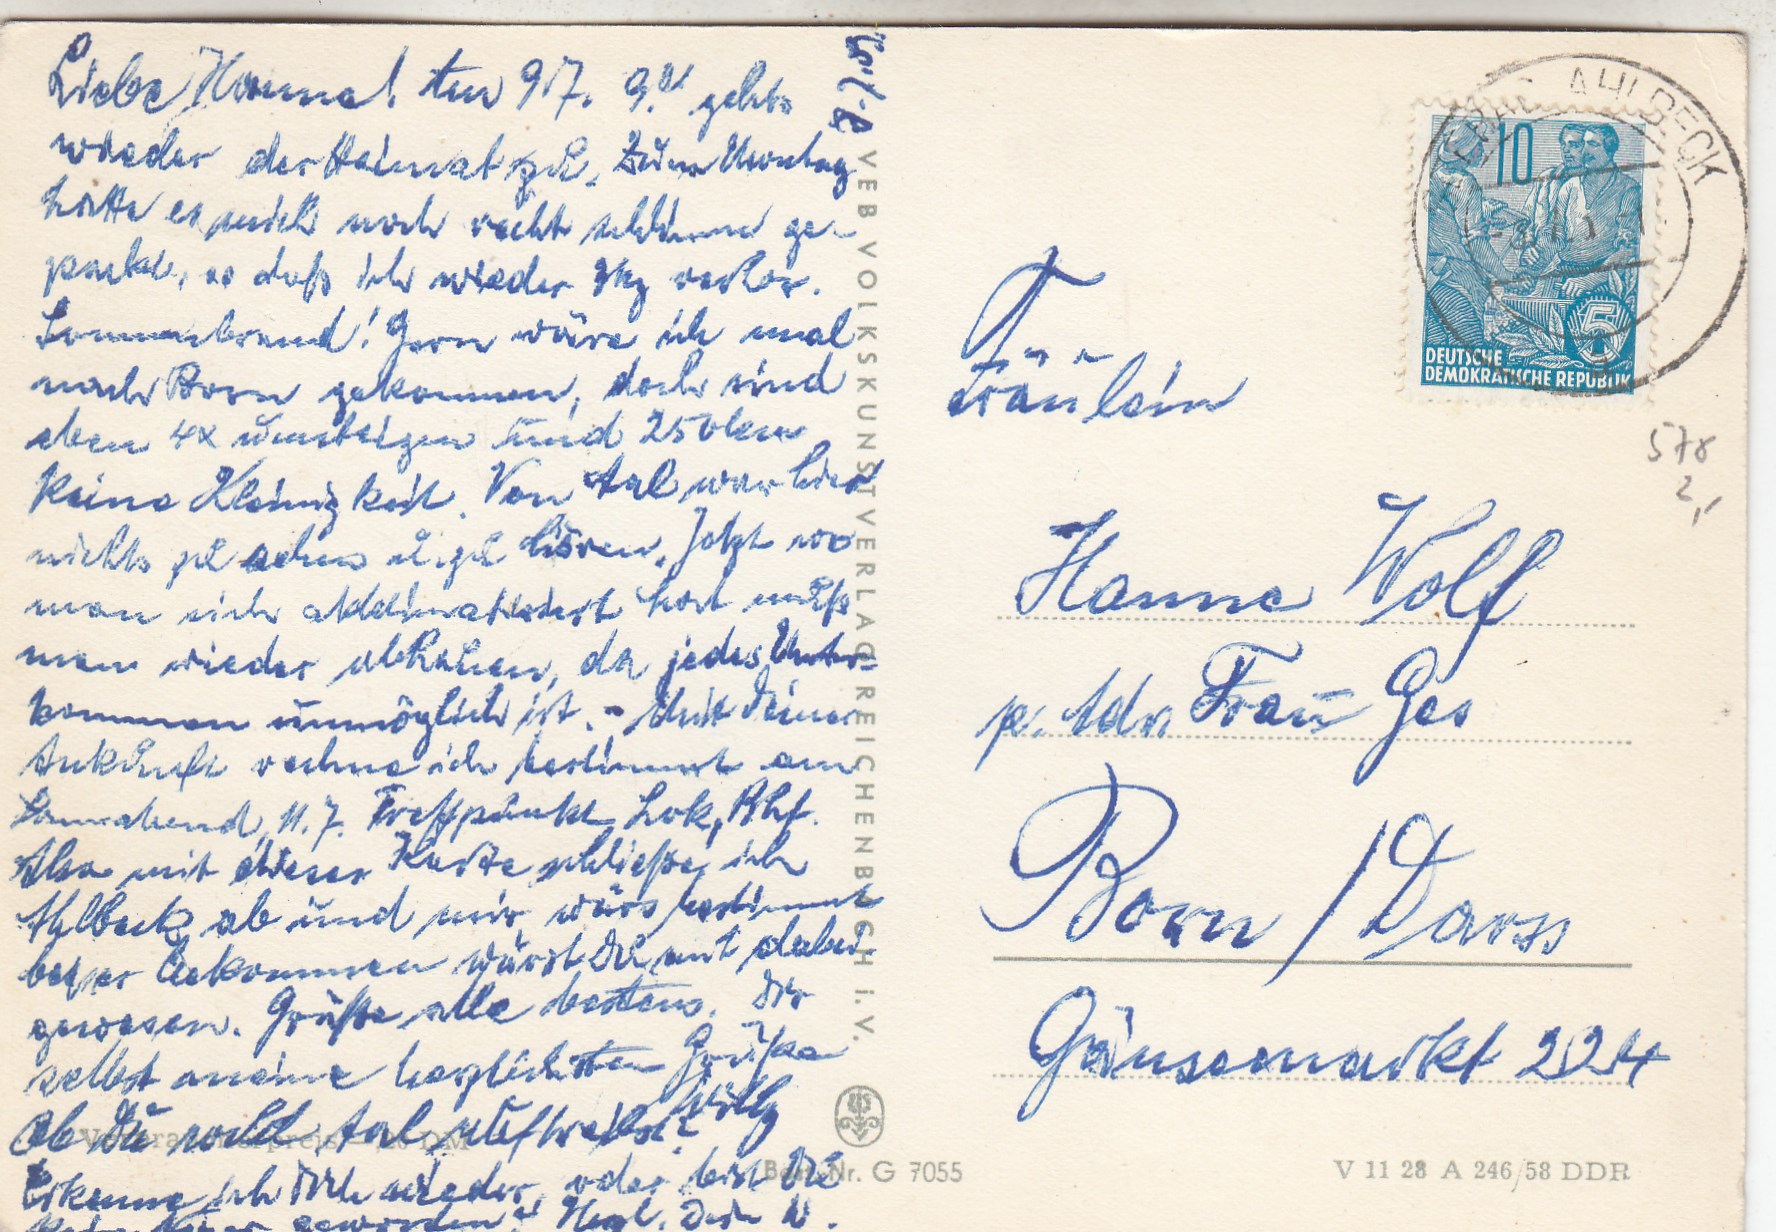 8.7.59
Liebe Hanna! Am 9.7. 9.01 gehts
wieder der Heimat zu. Zum Montag
hatte es mich noch recht schlimm ge-
packt, so daß ich wieder kg verlor.
Sonnenbrand! Gern wäre ich mal
nach Born gekommen, doch sind
eben 4x umsteigen und 250 km
keine Kleinigkeit. Von Aal war hier
nichts zu sehen u. zu hören. Jetzt wo
man sich akklimatisiert hat muß
man wieder abhauen, da jedes Unter-
kommen unmöglich ist. - Mit Deiner
Ankunft rechne ich bestimmt am
Sonnabend, 11.7. Treffpunkt Lok, Bhf.
Also mit dieser Karte schließe ich
Ahlbeck ab und mir wärs bestimmt
besser bekommen wärst Du mit dabei
gewesen. Grüße alle bestens. Dir
selbst meine herzlichsten Grüße
Willy
Ob Du wohl Aal auftreibst?
Erkenne ich Dich wieder, oder bist Du
geworden? Herzl. Dein W.
VEB VOLKSKUNSTVERLAG REICHENBACH I. V.
Verbraucherpreis DM
Best.-Nr. G 7055
AHLBECK
10
5
DEUTSCHE
DEMOKRATISCHE REPUBLIK
578
2,
Fräulein
Hanne Wolf
p. Adr. Frau Ges
Born / Darss
Gänsemarkt 224
V 11 28 A 246/58 DDR